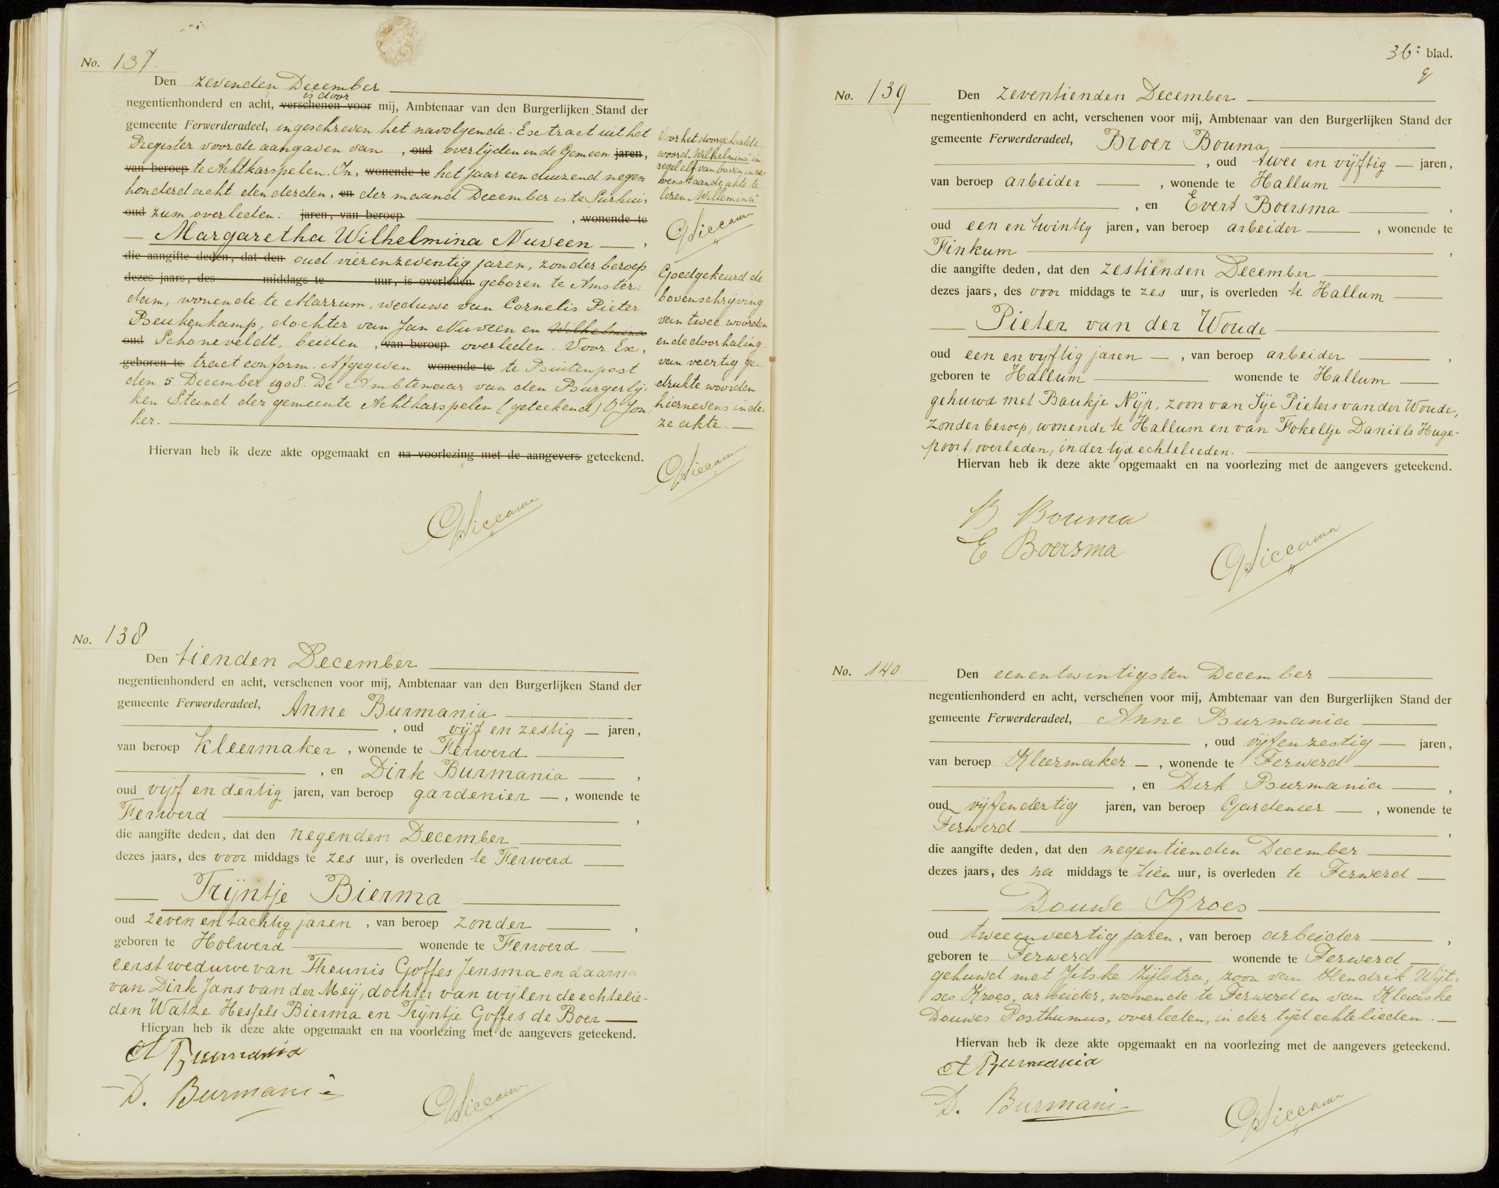 No. 137.
Den zevenden December
is door
negentienhonderd en acht, verschenen voor mij, Ambtenaar van den Burgerlijken Stand der
gemeente Ferwerderadeel, ingeschreven het navolgende. Extract uit het
Register voor de aangaven van , oud overlijden in de Gemeen jaren,
van beroep te Achtkarspelen. In, wonende te het jaar een duizend negen
honderd acht den derden, en der maand December is te Surhui,
oud zum overleden. jaren, van beroep , wonende te
Margaretha Wilhelmina Nuveen ,
die aangifte deden, dat den oud vierenzeventig jaren, zonder beroep
dezes jaars, des middags te uur, is overleden geboren te Amster
dam, wonende te Marrum, weduwe van Cornelis Pieter
Beukenkamp, dochter van Jan Nuveen en Wilhelmina
oud Schoneveldt, beiden , van beroep overleden. Voor Ex,
geboren te tract conform. Afgegeven wonende te te Buitenpost
den 5 December 1908. De Ambtenaar van den Burgerlij,
ken Stand der gemeente Achtkarspelen (geteekend) O Jon
ker.
Hiervan heb ik deze akte opgemaakt en na voorlezing met de aangevers geteekend.
Voor het doorgehaalde
woord "Wilhelmina" in
regel elf van boven in ne-
venstaande akte te
lezen "Willemina"
Goedgekeurd de
bovenschrijving
van twee woorden
en de doorhaling
van veertig ge-
drukte woorden
hiernevens in de-
ze akte.
No. 138
Den tienden December
negentienhonderd en acht, verschenen voor mij, Ambtenaar van den Burgerlijken Stand der
gemeente Ferwerderadeel, Anne Burmania
, oud vijf en zestig jaren,
van beroep kleermaker , wonende te Ferwerd
, en Dirk Burmania ,
oud vijf en dertig jaren, van beroep gardenier , wonende te
Ferwerd ,
die aangifte deden, dat den negenden December
dezes jaars, des voor middags te zes uur, is overleden te Ferwerd
Trijntje Bierma
oud zeven en tachtig jaren , van beroep zonder ,
geboren te Holwerd wonende te Ferwerd
eerst weduwe van Theunis Goffes Jensma en daarna
van Dirk Jans van der Meij, dochter van wijlen de echtelie-
den Watze Hessels Bierma en Trijntje Goffes de Boer
Hiervan heb ik deze akte opgemaakt en na voorlezing met de aangevers geteekend.
A Burmania
D. Burmania
36e blad.
No. 139
Den zeventienden December
negentienhonderd en acht, verschenen voor mij, Ambtenaar van den Burgerlijken Stand der
gemeente Ferwerderadeel, Broer Bouma
, oud twee en vijftig jaren,
van beroep arbeider , wonende te Hallum
, en Evert Boersma ,
oud een en twintig jaren, van beroep arbeider , wonende te
Finkum ,
die aangifte deden, dat den zestienden December
dezes jaars, des voor middags te zes uur, is overleden te Hallum
Pieter van der Woude
oud een en vijftig jaren , van beroep arbeider ,
geboren te Hallum wonende te Hallum
gehuwd met Baukje Nijp, zoon van Sije Pieters van der Woude,
zonder beroep, wonende te Hallum en van Fokeltje Daniels Huge-
poort, overleden, in der tijd echtelieden.
Hiervan heb ik deze akte opgemaakt en na voorlezing met de aangevers geteekend.
B Bouma
E Boersma
No. 140
Den eenentwintigsten December
negentienhonderd en acht, verschenen voor mij, Ambtenaar van den Burgerlijken Stand der
gemeente Ferwerderadeel, Anne Burmania
, oud vijfenzestig jaren,
van beroep Kleermaker , wonende te Ferwerd
, en Dirk Burmania ,
oud vijfendertig jaren, van beroep Gardenier , wonende te
Ferwerd ,
die aangifte deden, dat den negentienden December
dezes jaars, des na middags te tien uur, is overleden te Ferwerd
Douwe Kroes
oud tweeenveertig jaren , van beroep arbeider ,
geboren te Ferwerd wonende te Ferwerd
gehuwd met Jitske Zijlstra, zoon van Hendrik Wijt-
ses Kroes, arbeider, wonende te Ferwerd en van Klaaske
Douwes Posthumus, overleden, in der tijd echtelieden.
Hiervan heb ik deze akte opgemaakt en na voorlezing met de aangevers geteekend.
A Burmania
D. Burmania